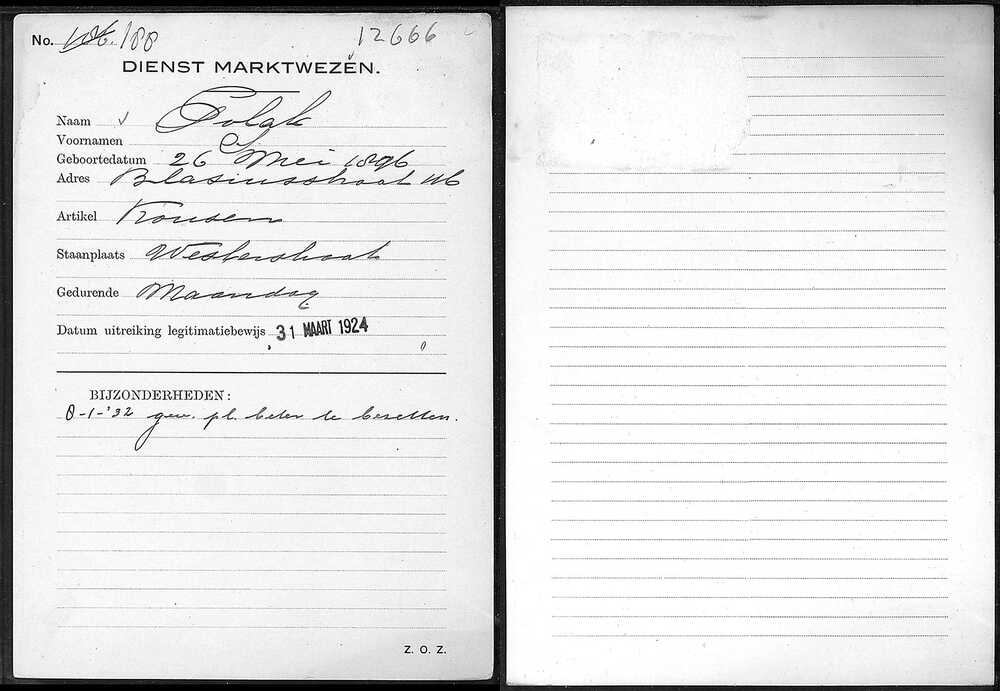 No. 186. 188 12666
DIENST MARKTWEZEN.
Naam Polak
Voornamen S
Geboortedatum 26 Mei 1896
Adres Blasiusstraat 116
Artikel Kousen
Staanplaats Westerstraat
Gedurende Maandag
Datum uitreiking legitimatiebewijs 31 MAART 1924
BIJZONDERHEDEN:
8-1-'32 gew. pl. beter te bezetten.
Z. O. Z.